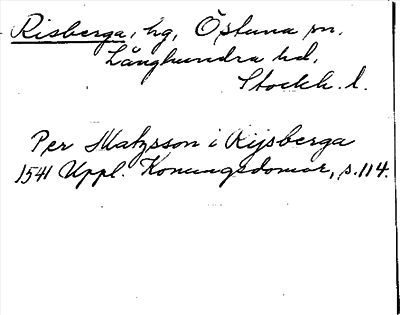 Risberga, hg, Östuna sn,
Långhundra hd,
Stockh. l.
Per Matzsson i Rijsberga
1541 Uppl. Konungsdomar, s. 114.